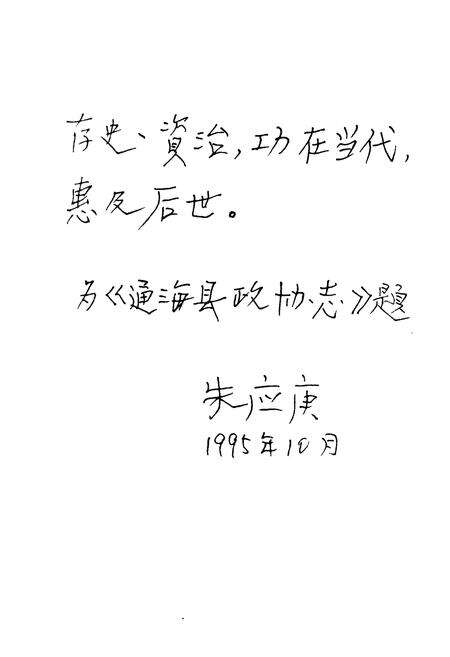 存史、資治,功在当代,
惠及后世。
为《通海县政协志》题
朱应庚
1995年10月